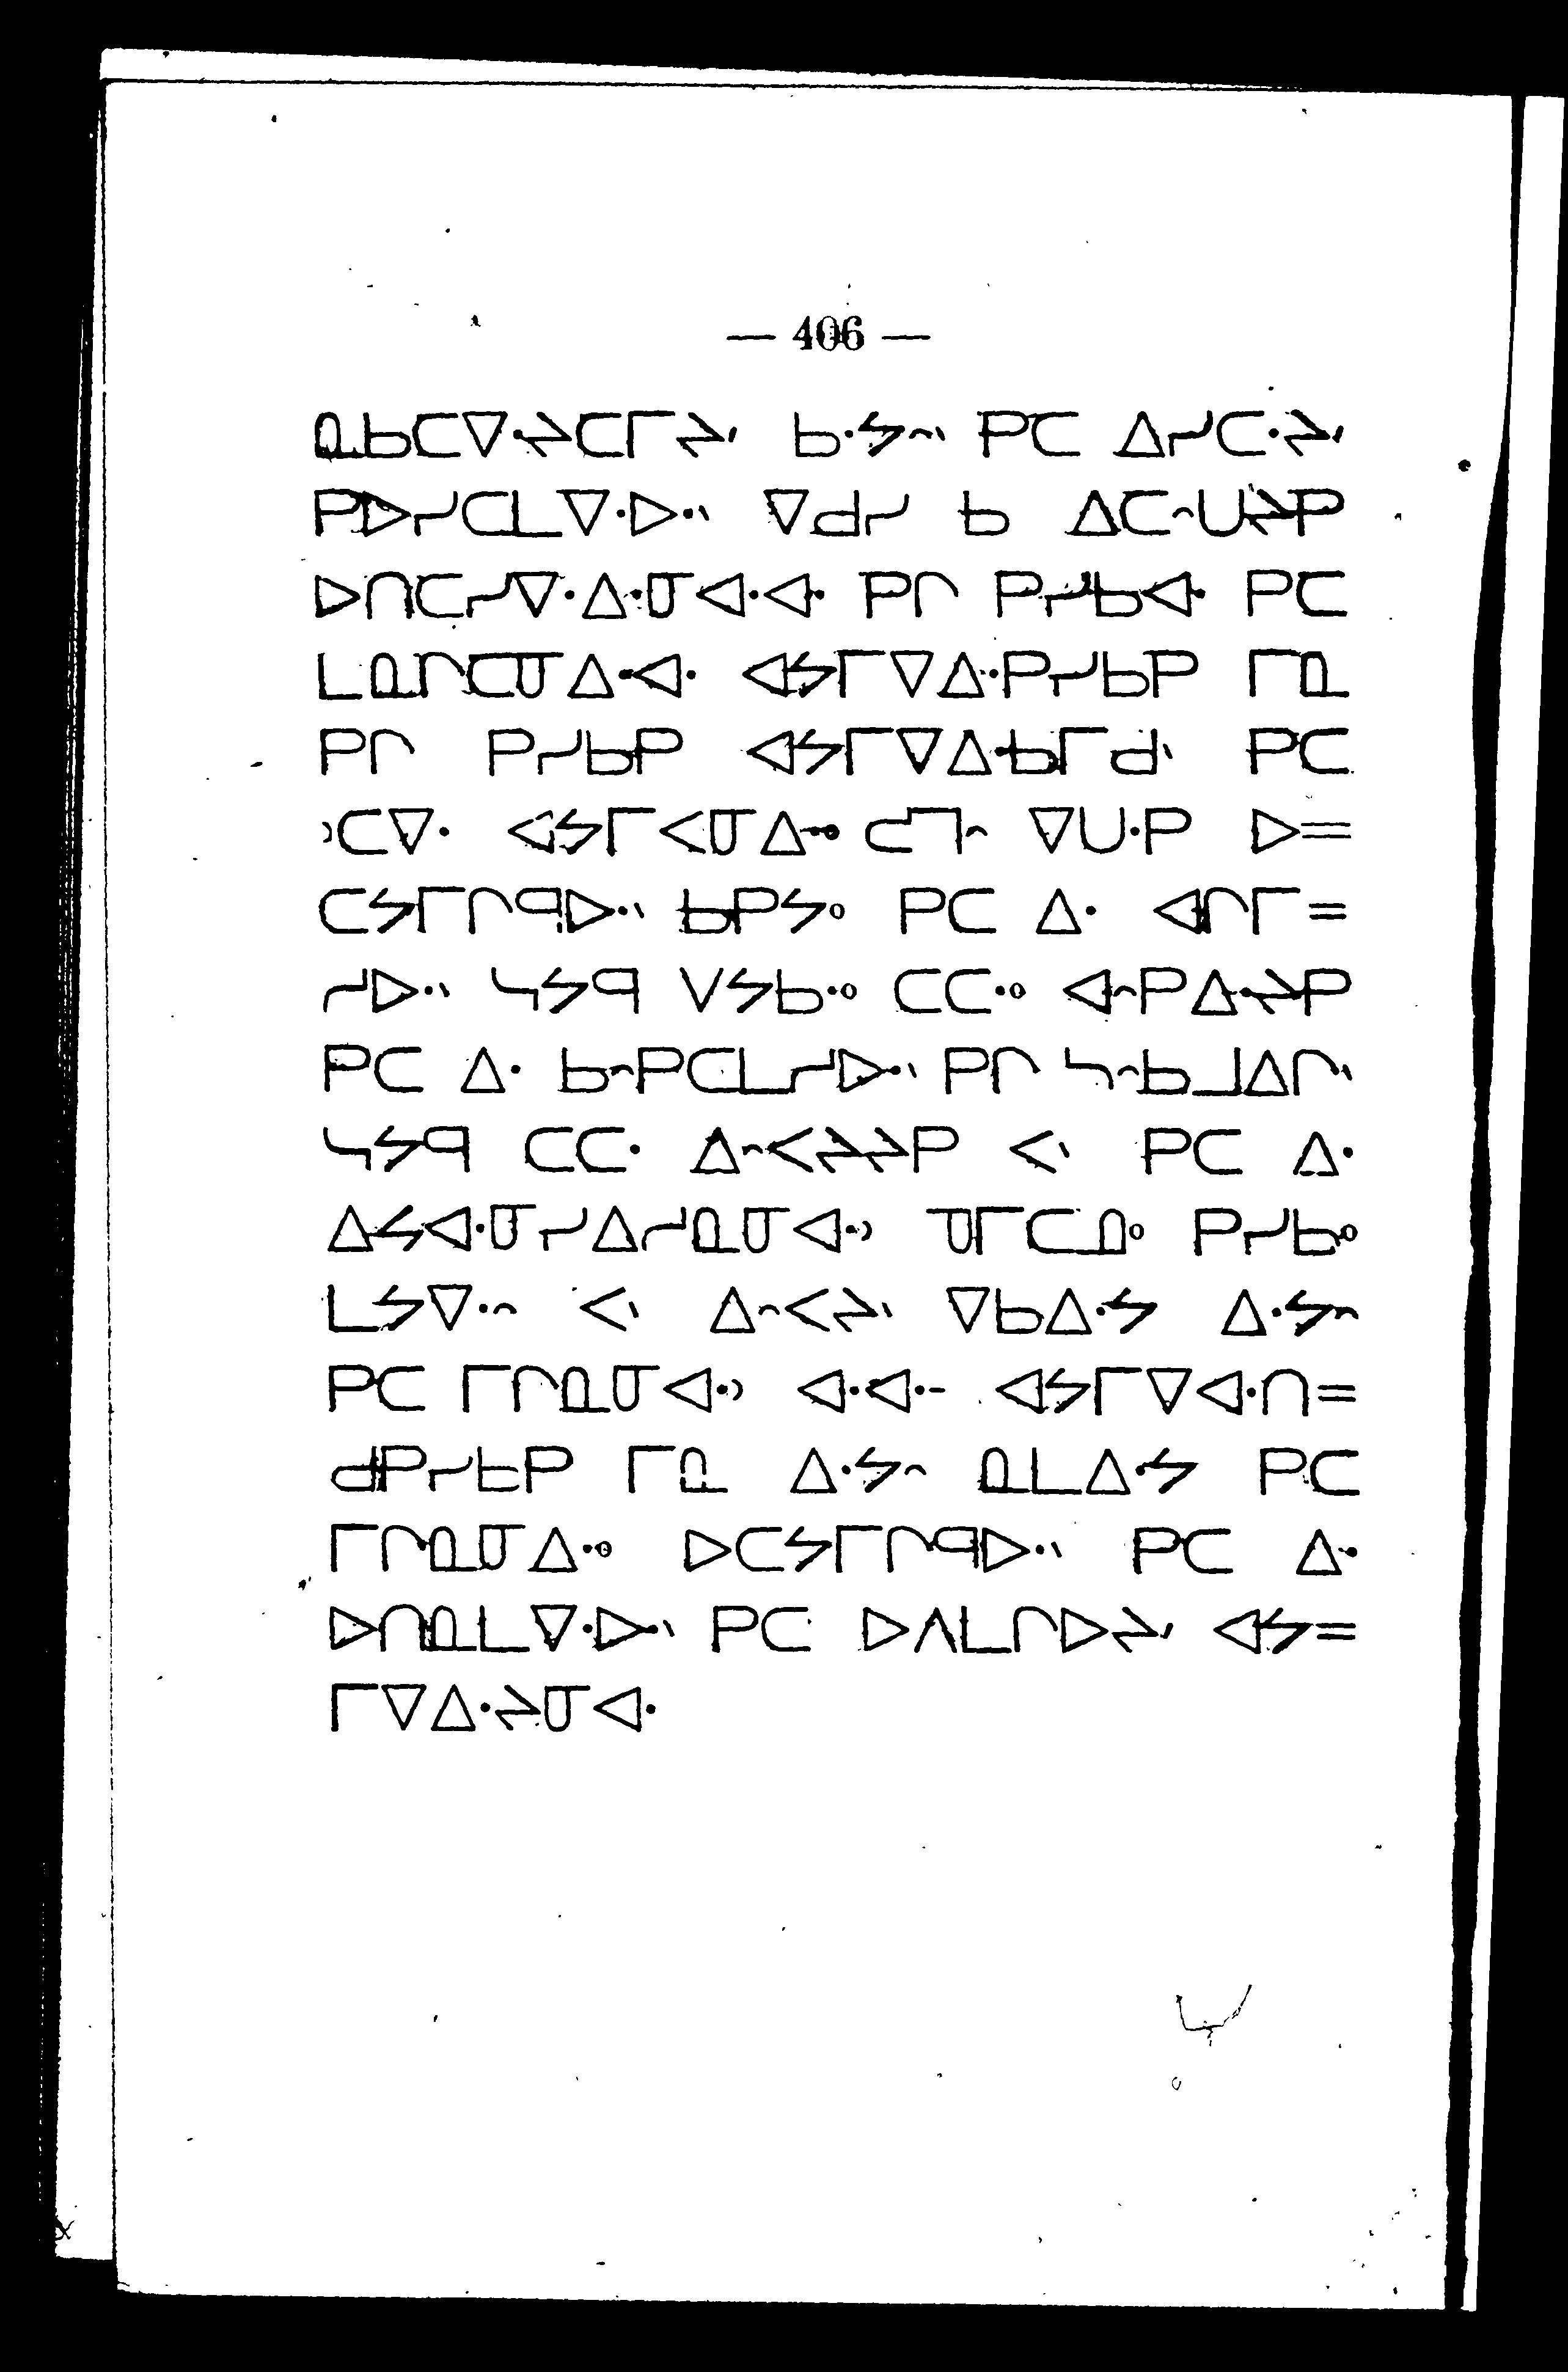 — 406 —
ᓇᑲᑕᐁᐧᔨᑕᒥᔨᐟ ᑲᐧᔭᐢᐠ ᑭᑕ ᐃᓯᑕᐧᔨᐟ
ᑭᐅᓯᑕᒪᐁᐧᐅᐧᐠ ᐁᑯᓯ ᑲ ᐃᑕᐢᑌᔨᑭ
ᐅᑎᑕᓯᐁᐧᐃᐧᓂᐊᐧᐊᐧ ᑭᒋ ᑭᓯᑲᐊᐧ ᑭᑕ
ᒪᓇᒋᑕᓂᐃᐧᐊᐧ ᐊᔭᒥᐁᐃᐧᑭᓯᑲᑭ ᒥᓇ
ᑭᒋ ᑭᓯᑲᑭ ᐊᔭᒥᐁᐃᐧᑲᒥᑯᐠ ᑭᑕ
ᐣᑕᐁᐧ ᐊᔭᒥᐸᓂᐃᐧᐤ ᓚᒣᐢ ᐁᑌᐧᑭ ᐅ=
ᑕᔭᒥᒋᑫᐅᐧᐠ ᑲᑭᔭᐤ ᑭᑕ ᐃᐧ ᐊᒋᒥ=
ᓯᐅᐧᐠ ᓴᔭᑫ ᐯᔭᑲᐧᐤ ᑕᑕᐧᐤ ᐊᐢᑭᐃᐧᔨᑭ
ᑭᑕ ᐃᐧ ᑲᐢᑭᑕᒪᓯᐅᐧᐠ ᑭᒋ ᓴᐢᑲᒧᐃᒋᐠ
ᓴᔭᑫ ᑕᑕᐧ ᐃᐢᐸᔨᔨᑭ ᐸᐠ ᑭᑕ ᐃᐧ
ᐃᔭᐊᐧᓂᓯᐃᓯᓇᓂᐊᐧᐣ ᓀᒥᑕᓇᐤ ᑭᓯᑲᐤ
ᒪᔭᐁᐧᐢ ᐸᐠ ᐃᐢᐸᔨᐠ ᐁᑲᐃᐧᔭ ᐃᐧᔭᐢ
ᑭᑕ ᒥᒋᓇᓂᐊᐧᐣ ᐊᐧᐊᐧᐨ ᐊᔭᒥᐁᐊᐧᑎ=
ᑯᑭᓯᑲᑭ ᒥᓇ ᐃᐧᔭᐢ ᓇᒪᐃᐧᔭ ᑭᑕ
ᒥᒋᓇᓂᐃᐧᐤ ᐅᑕᔭᒥᒋᑫᐅᐧᐠ ᑭᑕ ᐃᐧ
ᐅᑎᓇᒪᐁᐧᐅᐧᐠ ᑭᑕ ᐅᐱᒪᒋᐅᔨᐟ ᐊᔭ=
ᒥᐁᐃᐧᔨᓂᐊᐧ